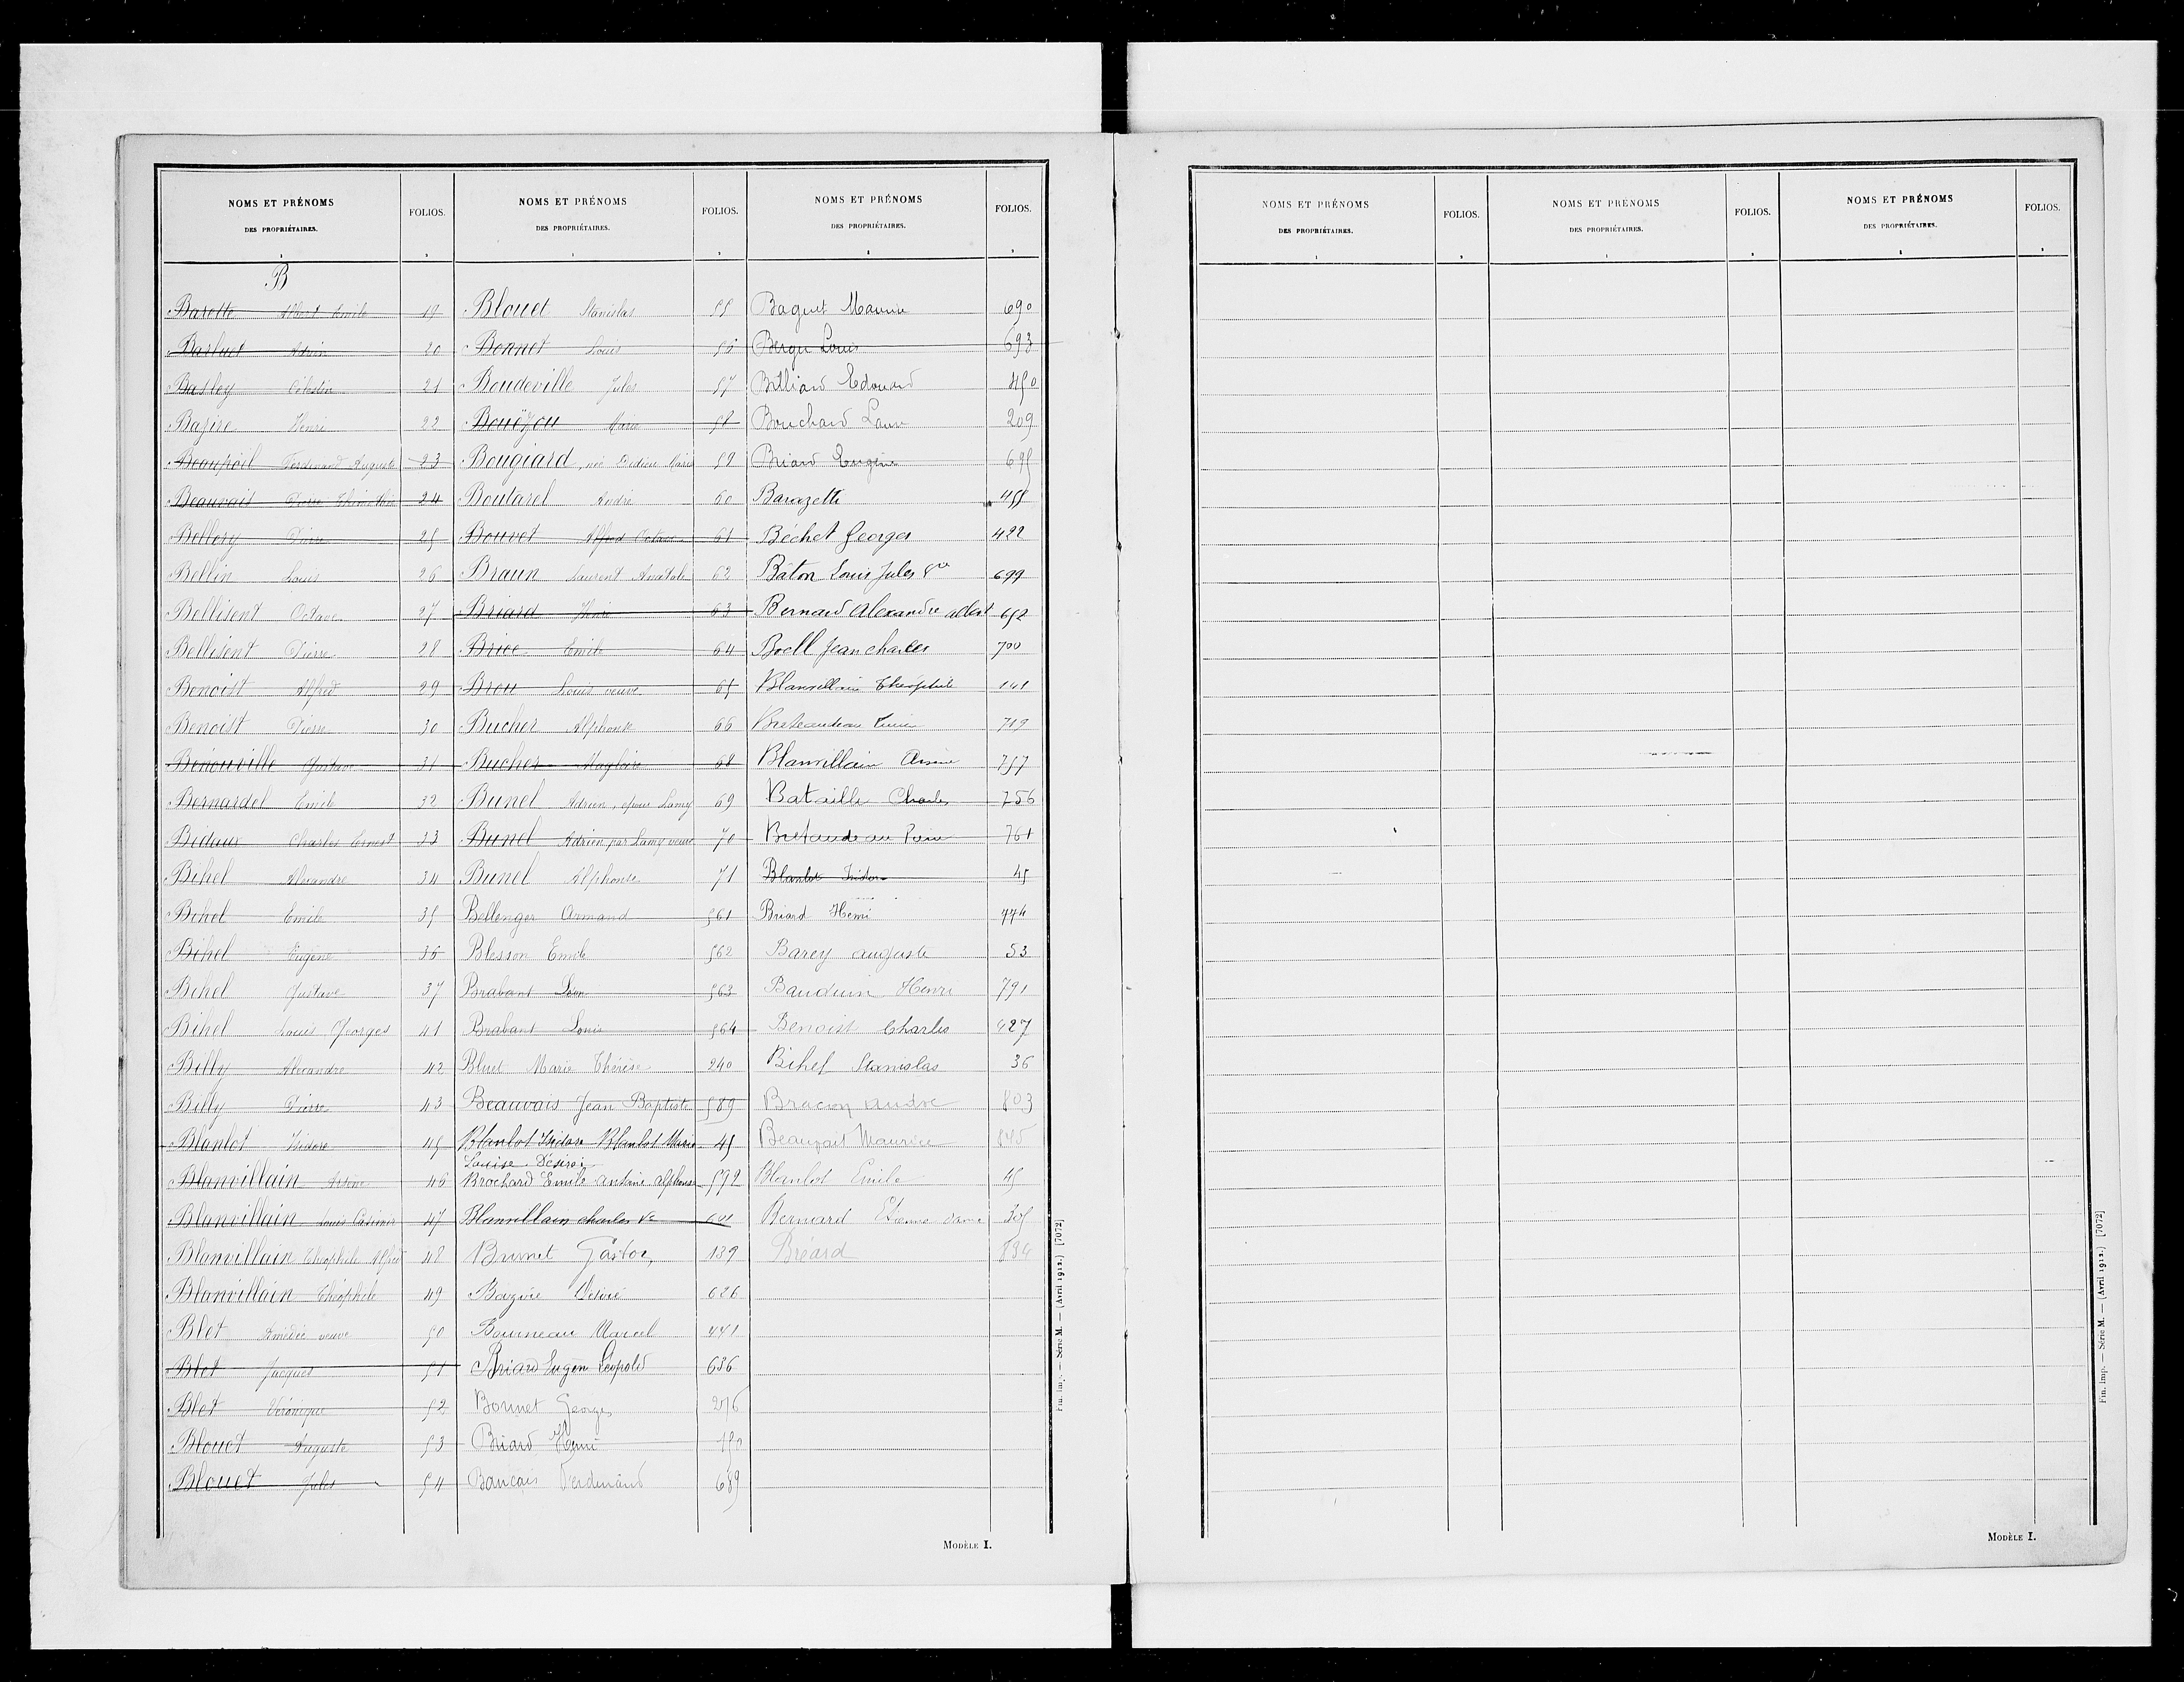 NOMS ET PRÉNOMS
DES PROPRIÉTAIRES.
FOLIOS.
B
Barette Albert Emile 19
Barluet Adrien 20
Basley Célestin 21
Bazire Henri 22
Beaupoil Ferdinand Auguste 23
Beauvais Pierre 24
Bellery Pierre 25
Bellin Louis 26
Bellisent Octave 27
Bellisent Pierre 28
Benoist Alfred 29
Benoist Pierre 30
Bénouville Gustave 31
Bernardel Emile 32
Bidaux Charles Ernest 33
Bihel Alexandre 34
Bihel Emile 35
Bihel Eugène 36
Bihel Gustave 37
Bihel Louis Georges 41
Billy Alexandre 42
Billy Pierre 43
Blanlot Isidore 45
Blanvillain Arsène 46
Blanvillain Louis Casimir 47
Blanvillain Théophile Alfred 48
Blanvillain Théophile 49
Blet Amédée veuve 50
Blet Jacques 51
Blet Véronique 52
Blouet Auguste 53
Blouet Jules 54
NOMS ET PRÉNOMS
DES PROPRIÉTAIRES.
FOLIOS.
Blouet Stanislas 55
Bonnet Louis 56
Boudeville Jules 57
Bouëzou Marie 58
Bougiard, née Dedieu Marie 59
Boutarel André 60
Bouvet Alfred Octave 61
Braun Laurent Anatole 62
Briard Henri 63
Brice Emile 64
Brou Louis veuve 65
Bucher Alphonse 66
Bucher Magloire 68
Bunel Adrien, époux Lamy 69
Bunel Adrien par Lamy veuve 70
Bunel Alphonse 71
Bellenger Armand 561
Blesson Emile 562
Brabant Léon 563
Brabant Louis 564
Bluet Marie Thérèse 240
Beauvais Jean Baptiste 589
Blanlot Isidore Blanlot Marie 45
Louise Désirée
Brochard Emile Antoine Alphonse 592
Blanvillain Charles Ve 601
Brunet Gaston 139
Bazire Désiré 626
Bourneau Marcel 441
Briard Eugène Léopold 636
Bonnet Georges 276
Briard Henri 150
Bancais Ferdinand 689
NOMS ET PRÉNOMS
DES PROPRIÉTAIRES.
FOLIOS.
Baguet Maurice 690
Berger Louis 693
Billiard Edouard 450
Bouchard Laure 209
Briard Eugène 695
Barazette 455
Béchet Georges 422
Bâton Louis Jules Vve 699
Bernard Alexandre Albert 652
Boell Jean Charles 700
Blanvillain Théophile 141
Breteaudeau 719
Blanvillain Arsène 757
Bataille Charles 756
Bretaudeau 761
Blanlot Isidore 45
Briard Henri 774
Barey Auguste 53
Bauduin Henri 791
Benoist Charles 427
Bihel Stanislas 36
Bracon André 803
Beaupait Maurice 845
Blanlot Emile 45
Bernard Etienne 305
Bréard 834
Fin. Imp. — Série M. — (Avril 1912.) [7072]
MODÈLE I.
NOMS ET PRÉNOMS
DES PROPRIÉTAIRES.
FOLIOS.
NOMS ET PRÉNOMS
DES PROPRIÉTAIRES.
FOLIOS.
NOMS ET PRÉNOMS
DES PROPRIÉTAIRES.
FOLIOS.
Fin. Imp. — Série M. — (Avril 1912.) [7072]
MODÈLE I.